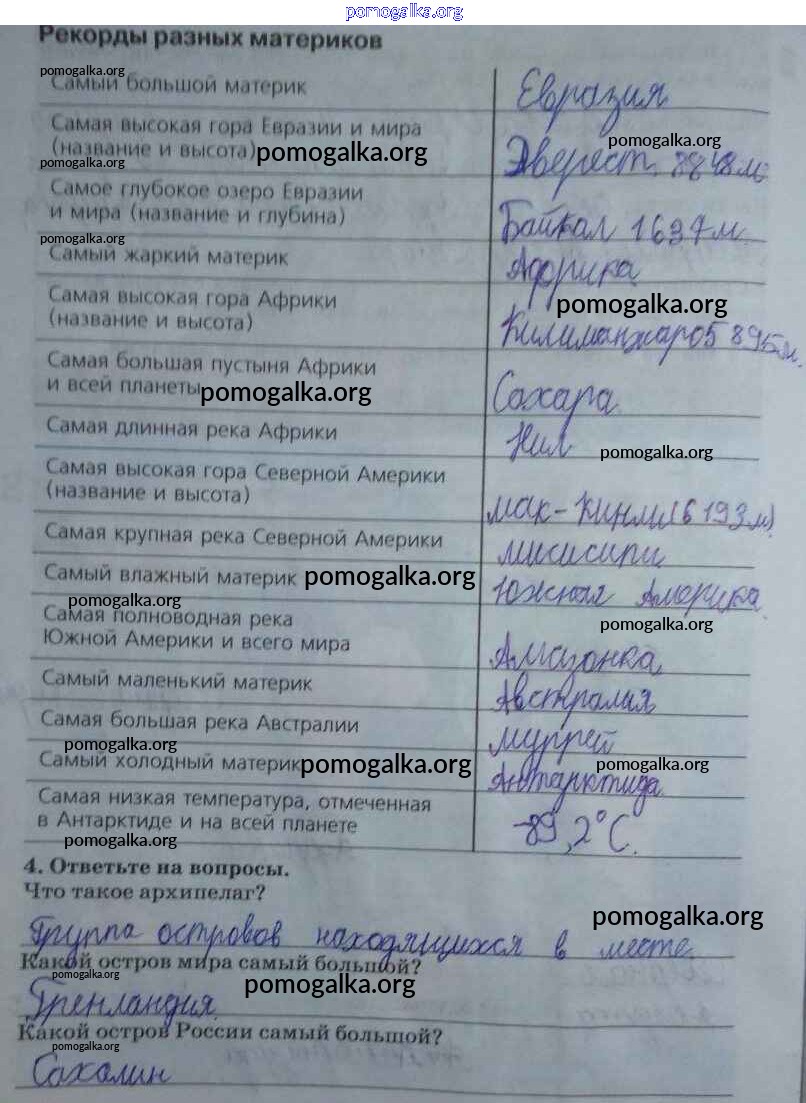 pomogalka.org
Рекорды разных материков
pomogalka.org
Самый большой материк
Евразия
Самая высокая гора Евразии и мира
(название и высота) pomogalka.org
pomogalka.org
Эверест, 8848м.
pomogalka.org
Самое глубокое озеро Евразии
и мира (название и глубина)
Байкал 1637м.
pomogalka.org
Самый жаркий материк
Африка
Самая высокая гора Африки
(название и высота)
pomogalka.org
Килиманжаро5 895м.
Самая большая пустыня Африки
и всей планеты pomogalka.org
Сахара.
Самая длинная река Африки
Нил
pomogalka.org
Самая высокая гора Северной Америки
(название и высота)
мак-Кинли(6 193м).
Самая крупная река Северной Америки
мисисипи
Самый влажный материк pomogalka.org
Южная Америка.
pomogalka.org
Самая полноводная река
Южной Америки и всего мира
pomogalka.org
Амазонка
Самый маленький материк
Австралия
Самая большая река Австралии
муррей
pomogalka.org
Самый холодный материк pomogalka.org
pomogalka.org
Антарктида
Самая низкая температура, отмеченная
в Антарктиде и на всей планете
-89,2°С.
pomogalka.org
4. Ответьте на вопросы.
Что такое архипелаг?
pomogalka.org
Группа островов находящихся в месте.
Какой остров мира самый большой?
pomogalka.org
pomogalka.org
Гренландия.
Какой остров России самый большой?
pomogalka.org
Сахалин